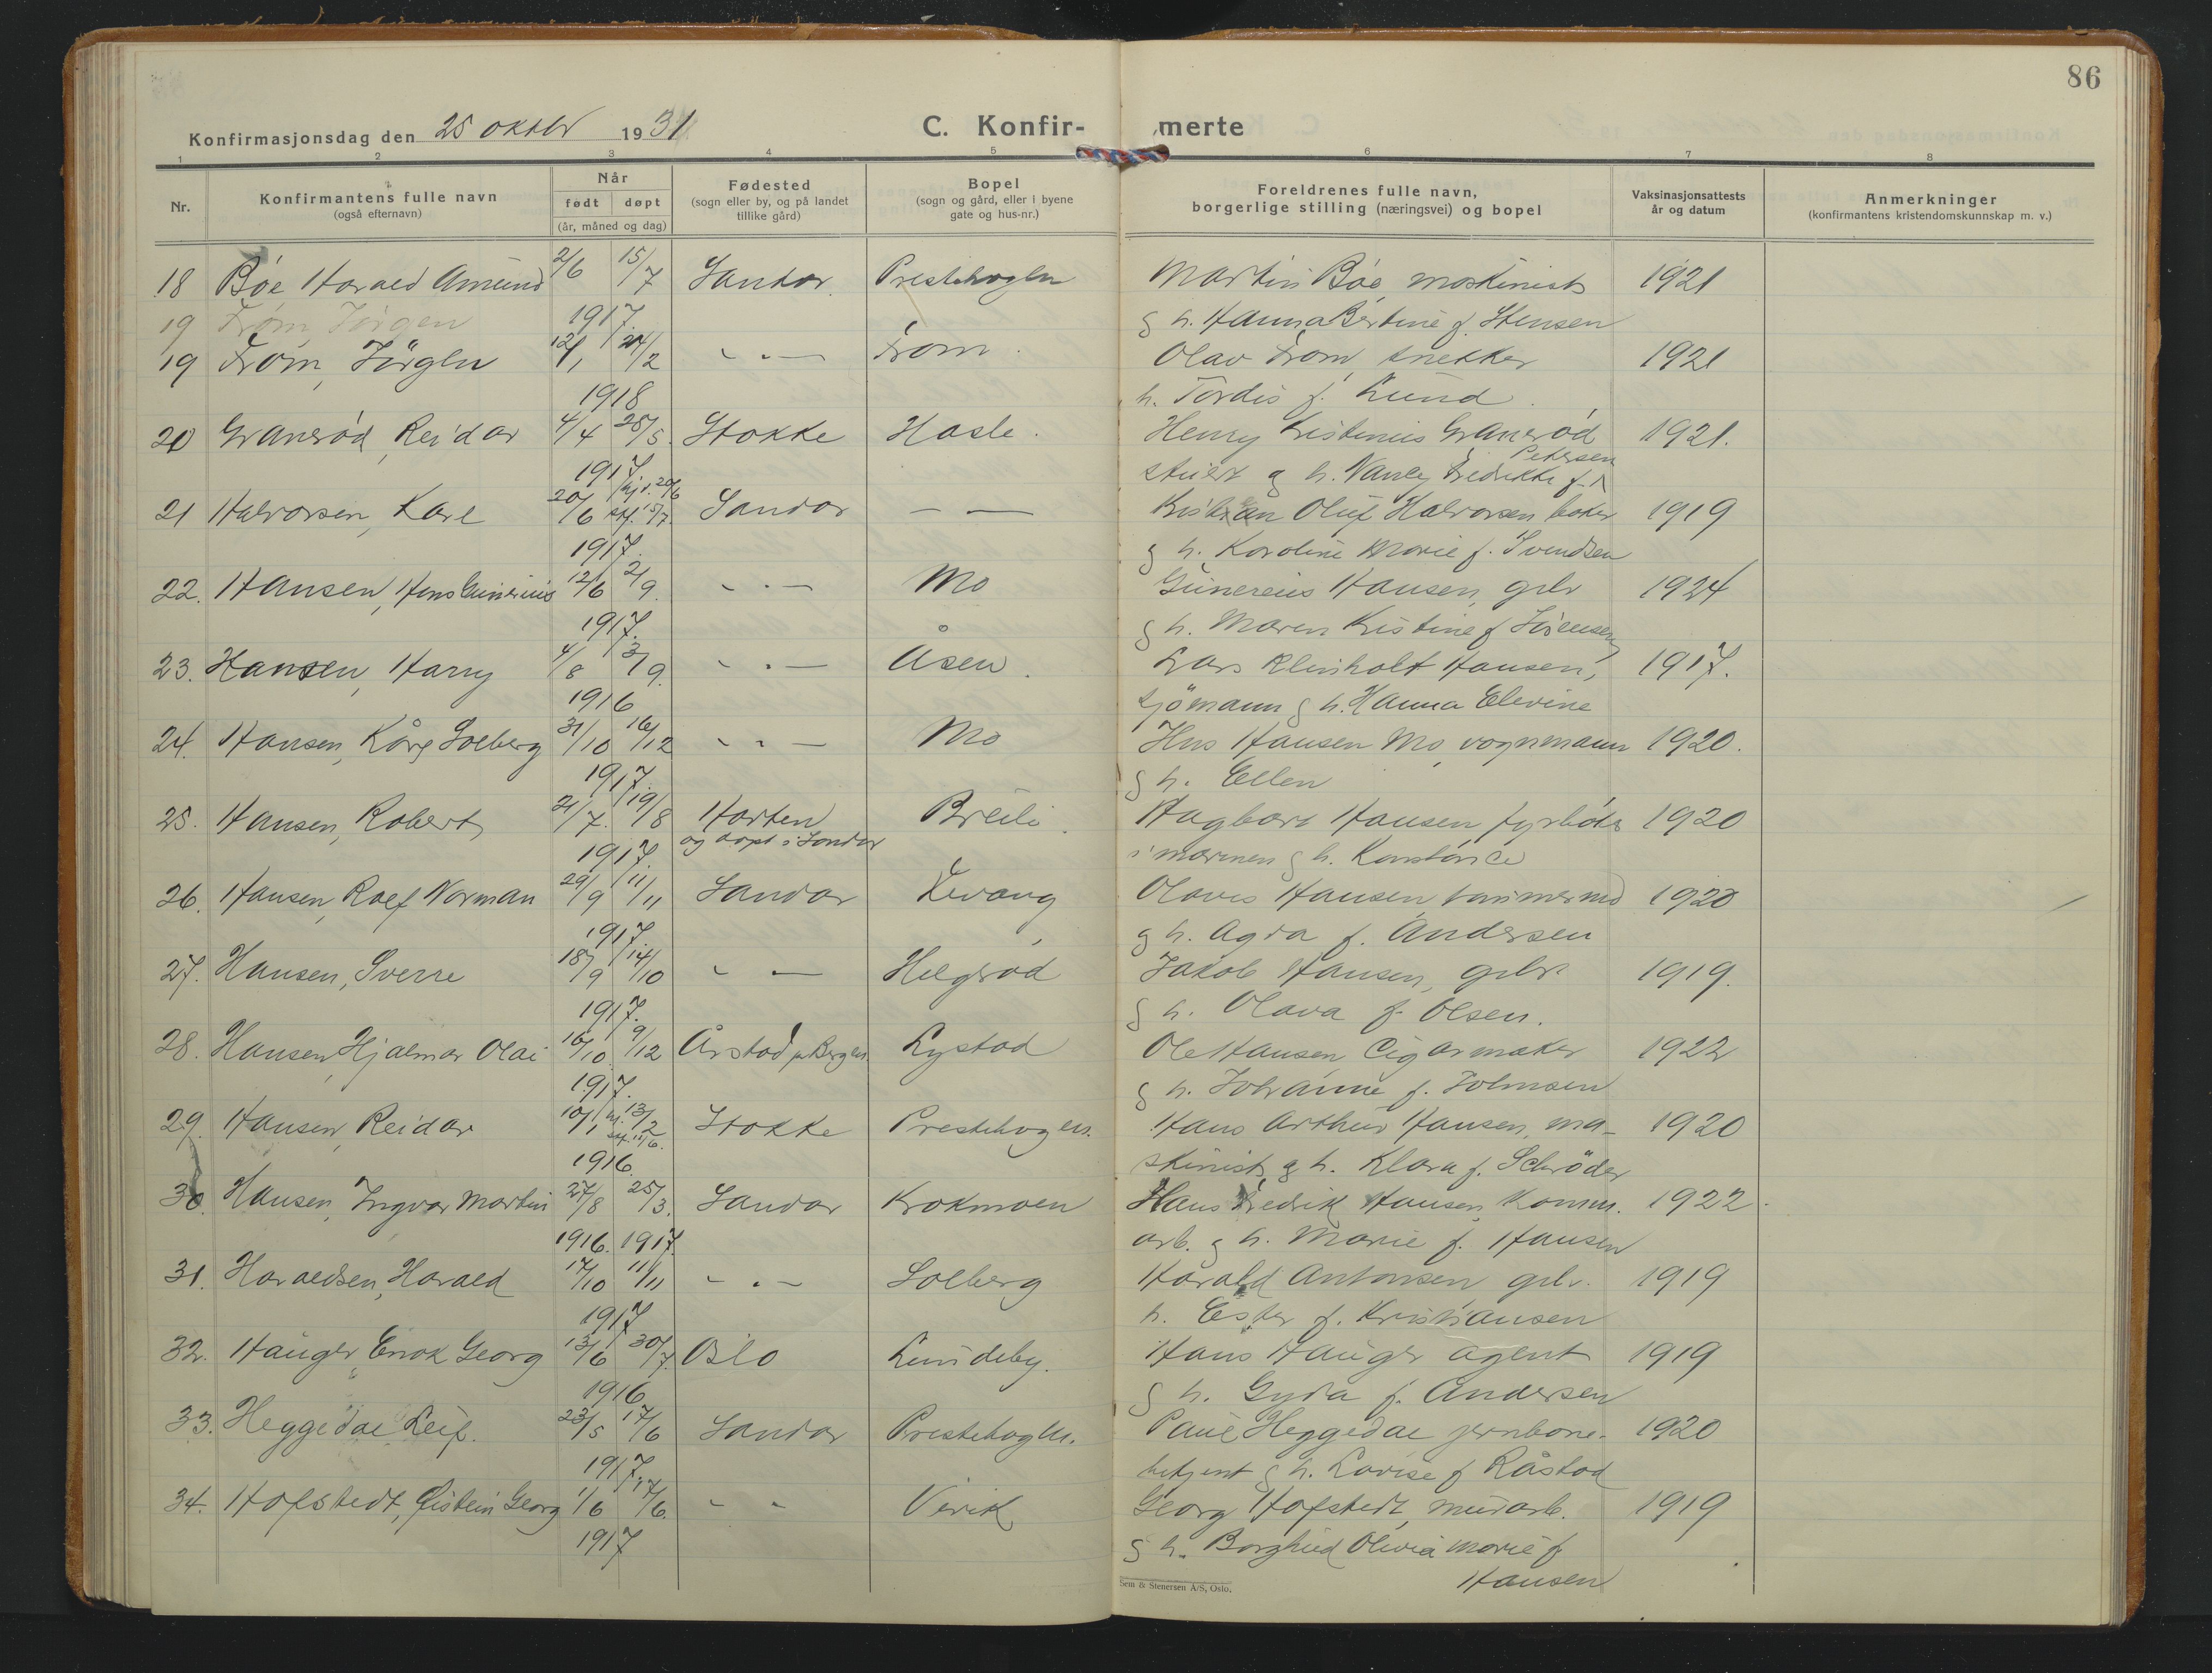 86
Konfirmasjonsdag den 25 oktbr 1931
C. Konfir- merte
1 2 3 4 5 6 7 8
Nr. Konfirmantens fulle navn (også efternavn) Når født døpt (år, måned og dag) Fødested (sogn eller by, og på landet tillike gård) Bopel (sogn og gård, eller i byene gate og hus-nr.) Foreldrenes fulle navn, borgerlige stilling (næringsvei) og bopel Vaksinasjonsattests år og datum Anmerkninger (konfirmantens kristendomskunnskap m. v.)
18 Bøe Harald Amund 2/6 15/7 Sandar Prestehagen Martin Bøe maskinist 1921
19 From Jørgen 1917. g h. Hanna Bertine f. Stensen
19 From, Jørgen 12/1 24/2 - . - From. Olav From, snekker 1921
1918 h. Tordis f. Lund.
20 Granerød, Reidar 4/4 28/5. Stokke Hasle. Henry Kristinius Granerød 1921.
1917. stuert g h. Nancy Fredrikke f. Petersen
21 Halvorsen, Kare 20/6 hj. d. 20/6 stf. 15/7. Sandar - - Kristian Oluf Halvorsen baker 1919
1917. g h. Karoline Marie f. Svendsen
22. Hansen, Hans Gunerius 12/6 2/9. - . - Mo Gunereus Hansen, gbr 1924
1917. g h. Maren Kristine f Jørensen
23. Hansen, Harry 4/8 3/9. - . - Åsen. Lars Klinholt Hansen, 1917.
1916 sjømann g h. Hanna Elevine
24. Hansen, Kåre Solberg 31/10 16/12 - . - Mo Hns Hansen Mo, vognmann 1920.
1917. g h. Ellen
25. Hansen, Robert 21/7. 19/8 Horten og døpt i Sandar Breili. Hagbart Hansen fyrbøter 1920
1917. i marinen g h. Konstance
26. Hansen, Rolf Norman 29/9 11/11 Sandar Kvang Olaves Hansen, tømmermd 1920
1917. g h. Agda f. Andersen
27. Hansen, Sverre 18/9 14/10 - - Helgerød Jakob Hansen, gbr. 1919.
1917. g h. Olava f. Olsen.
28. Hansen, Hjalmar Olai 16/10 9/12 Årstad pr Bergen. Lystad Ole Hansen Cigarmaker 1922
1917. g h. Johanne f. Johnsen
29. Hansen, Reidar 10/1 hj. 13/2 stf. 15/6. Stokke Prestehagen. Hans Arthur Hansen, ma- 1920
1916. skinist, g h. Klara f. Schrøder
30. Hansen, Ingvar Martin 27/8 25/3. Sandar Krokmoen Hans Fredrik Hansen, komm. 1922.
1916. 1917. arb. g h. Marie f. Hansen
31. Haraldsen, Harald 17/10 11/11 - . - Solberg Harald Antonsen gbr. 1919
1917 h. Ester f. Kristiansen
32. Hauger, Enok Georg 13/6 30/7. Oslo Lundeby. Hans Hauger agent 1919
1916. g h. Gyda f. Andersen
33. Heggedal Leif. 23/5 17/6 Sandar Prestehagen. Paul Heggedal jernbane- 1920
1917. betjent g h. Lovise f Råstad
34. Hofstedt, Øistein Georg 1/6 17/6. - - Virik Georg Hofstedt, murarb. 1919
1917 g h. Borghild Olivia Marie f
Hansen
Sem & Stenersen A/S, Oslo.